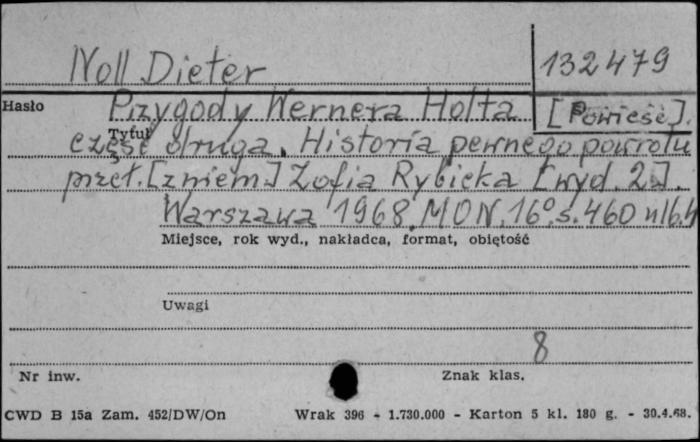 Noll Dieter
132479
Hasło
Przygody Wernera Holta [Powieść].
Tytuł
część druga. Historia pewnego powrotu
przeł. [z niem.] Zofia Rybicka [wyd. 2].
Warszawa 1968. MON. 16°. s. 460 nlb. 4
Miejsce, rok wyd., nakładca, format, objętość
Uwagi
8
Nr inw.
Znak klas.
CWD B 15a Zam. 452/DW/On Wrak 396 - 1.730.000 - Karton 5 kl. 180 g. - 30.4.68.